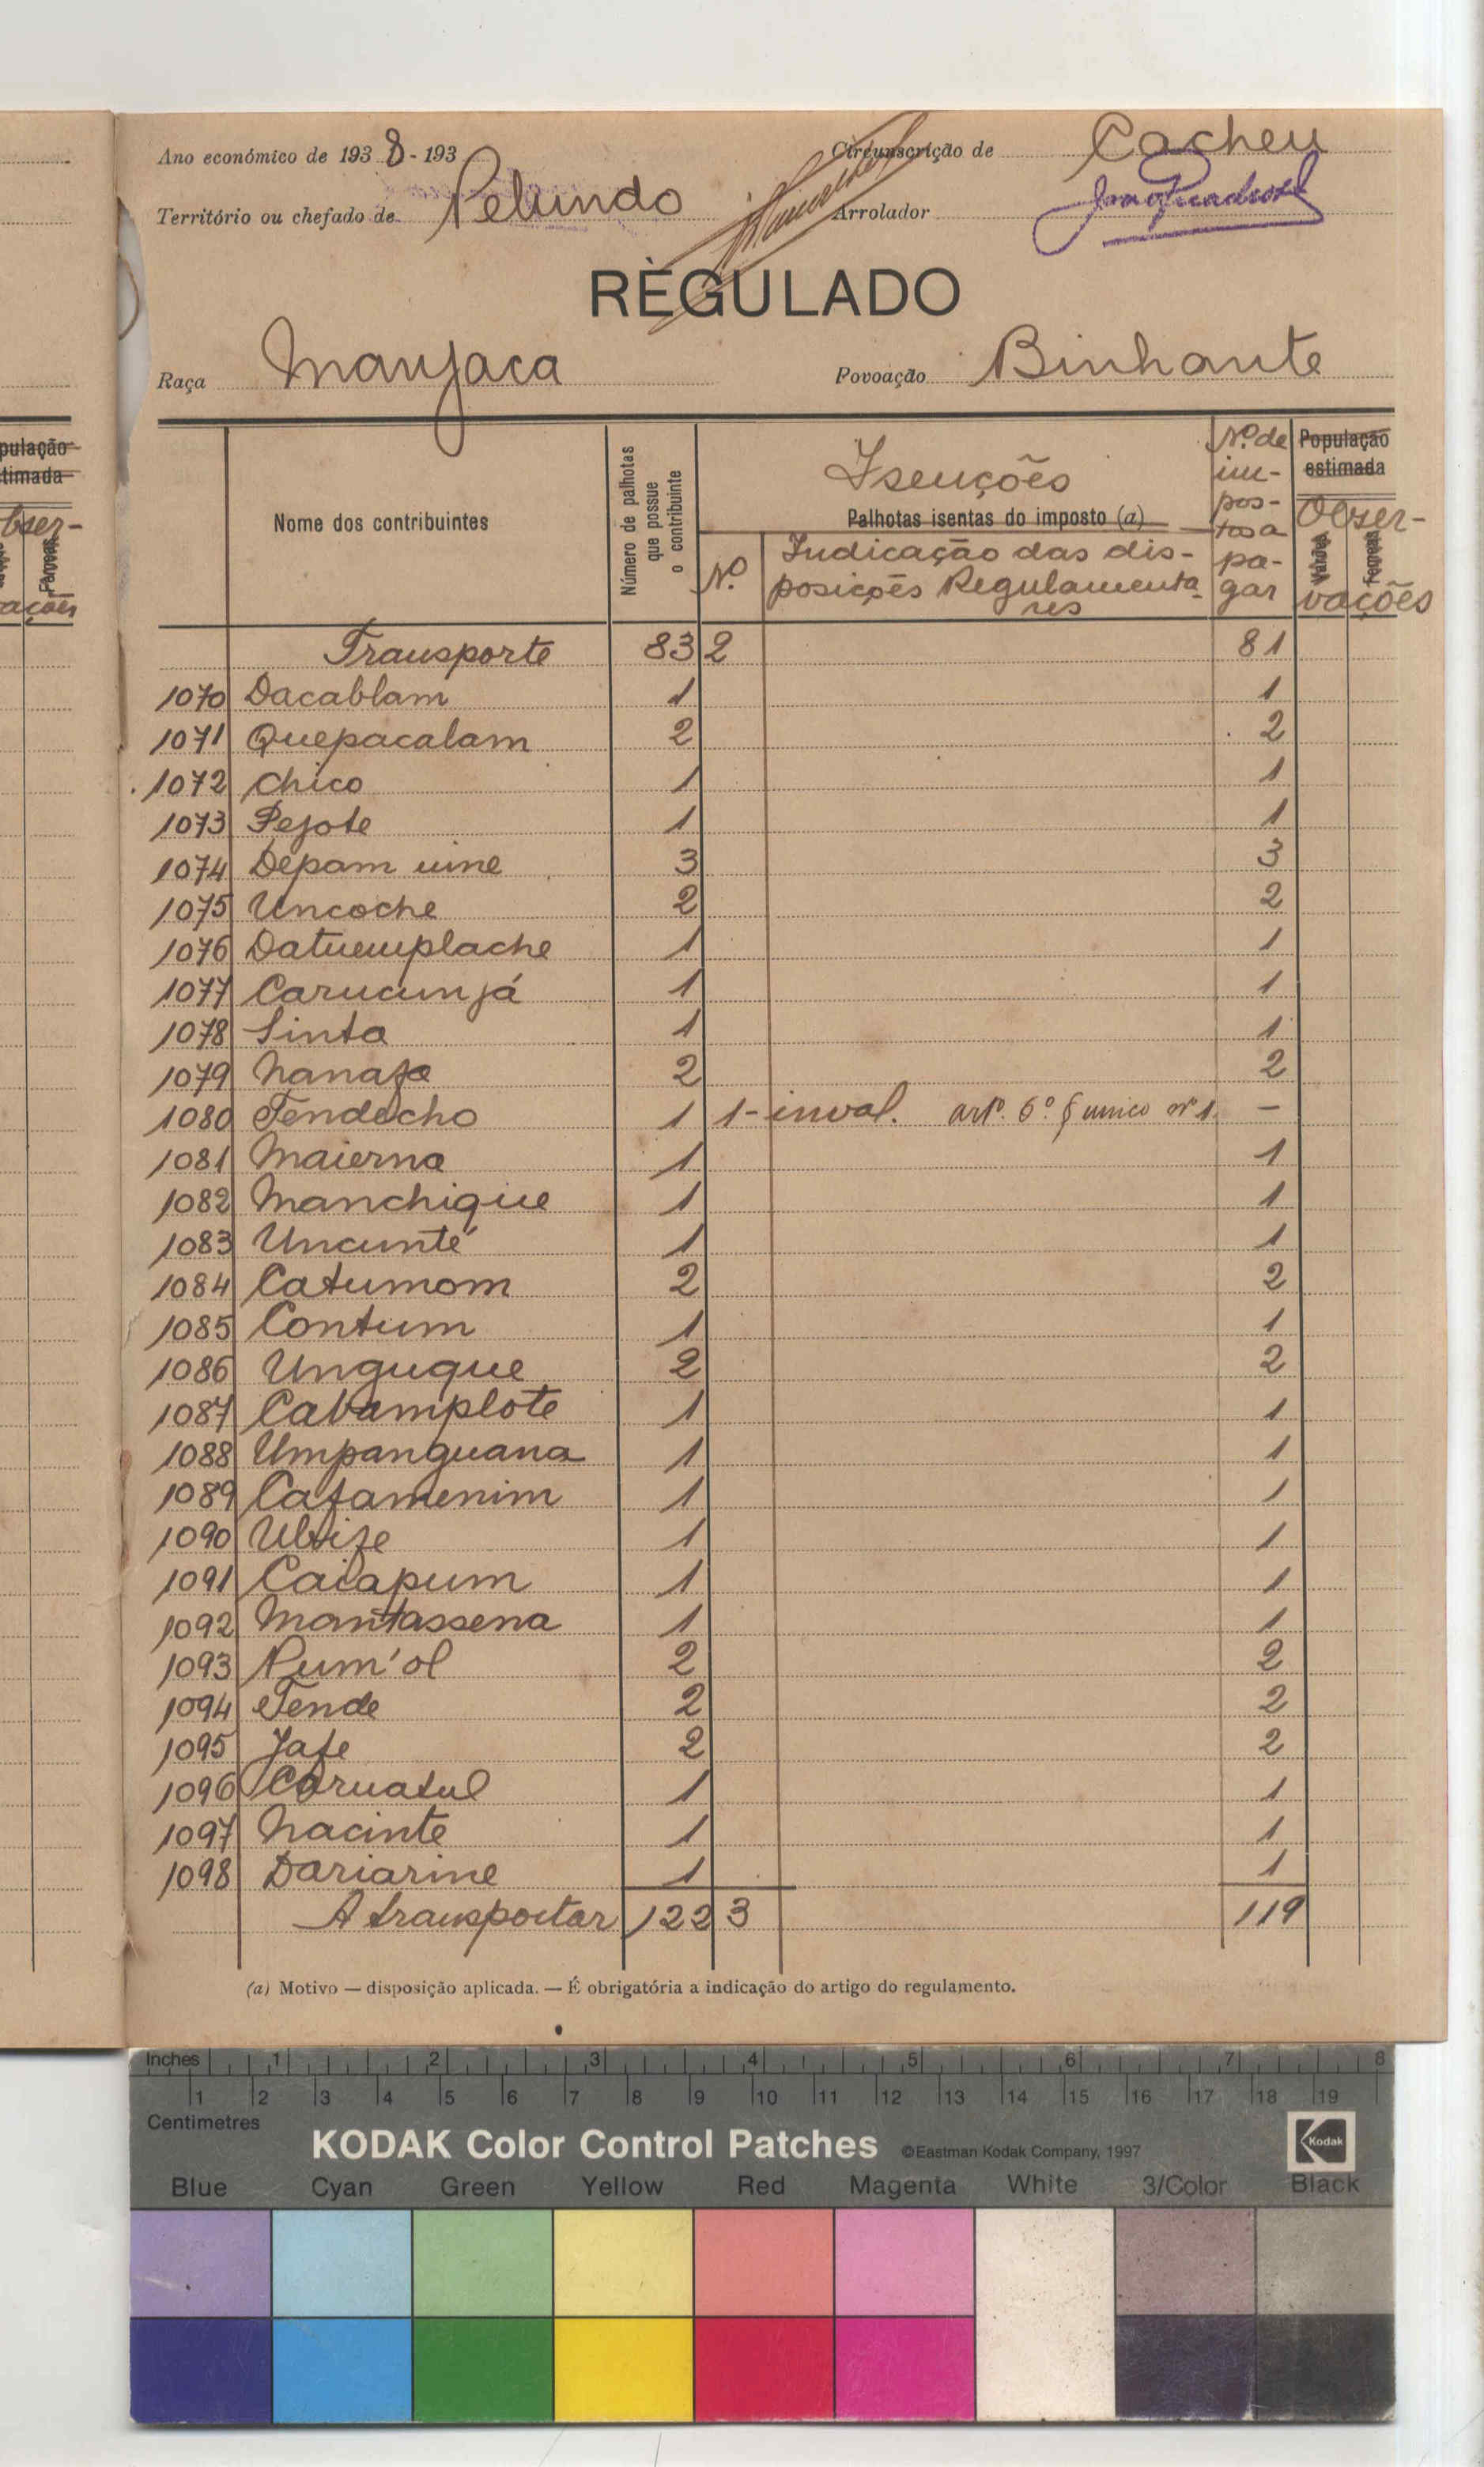 Ano económico de 1938-193
Circunscrição de Cacheu
Território ou chefado de Pelundo
Arrolador
RÈGULADO
Raça Manjaca
Povoação Binhante
Nome dos contribuintes
Número de palhotas que possue o contribuinte
Isenções
Palhotas isentas do imposto (a)
Nº
Indicação das dis-
posições Regulamenta-
res
Nº de
im-
pos-
tos a
pa-
gar
População
estimada
Obser-
vações
Transporte 83 2 81
1070 Dacablam 1 1
1071 Quepacalam 2 2
1072 Chico 1 1
1073 Pejote 1 1
1074 Depam uine 3 3
1075 Uncoche 2 2
1076 Datuemplache 1 1
1077 Carucunjá 1 1
1078 Sinta 1 1
1079 Nanafa 2 2
1080 Tendacho 1 1- inval. artº. 6º. § unico nº 1. —
1081 Maierna 1 1
1082 Manchique 1 1
1083 Uncunté 1 1
1084 Catumom 2 2
1085 Contum 1 1
1086 Unguque 2 2
1087 Cabamplote 1 1
1088 Umpanguana 1 1
1089 Cafamenim 1 1
1090 1 1
1091 Caiapum 1 1
1092 Mantassena 1 1
1093 Pum'ol 2 2
1094 Tende 2 2
1095 Jafe 2 2
1096 Coruatul 1 1
1097 Nacinte 1 1
1098 Dariarine 1 1
A transportar 122 3 119
(a) Motivo — disposição aplicada. — É obrigatória a indicação do artigo do regulamento.
Inches 1 2 3 4 5 6 7 8
1 2 3 4 5 6 7 8 9 10 11 12 13 14 15 16 17 18 19
Centimetres
KODAK Color Control Patches ©Eastman Kodak Company, 1997 Kodak
Blue Cyan Green Yellow Red Magenta White 3/Color Black